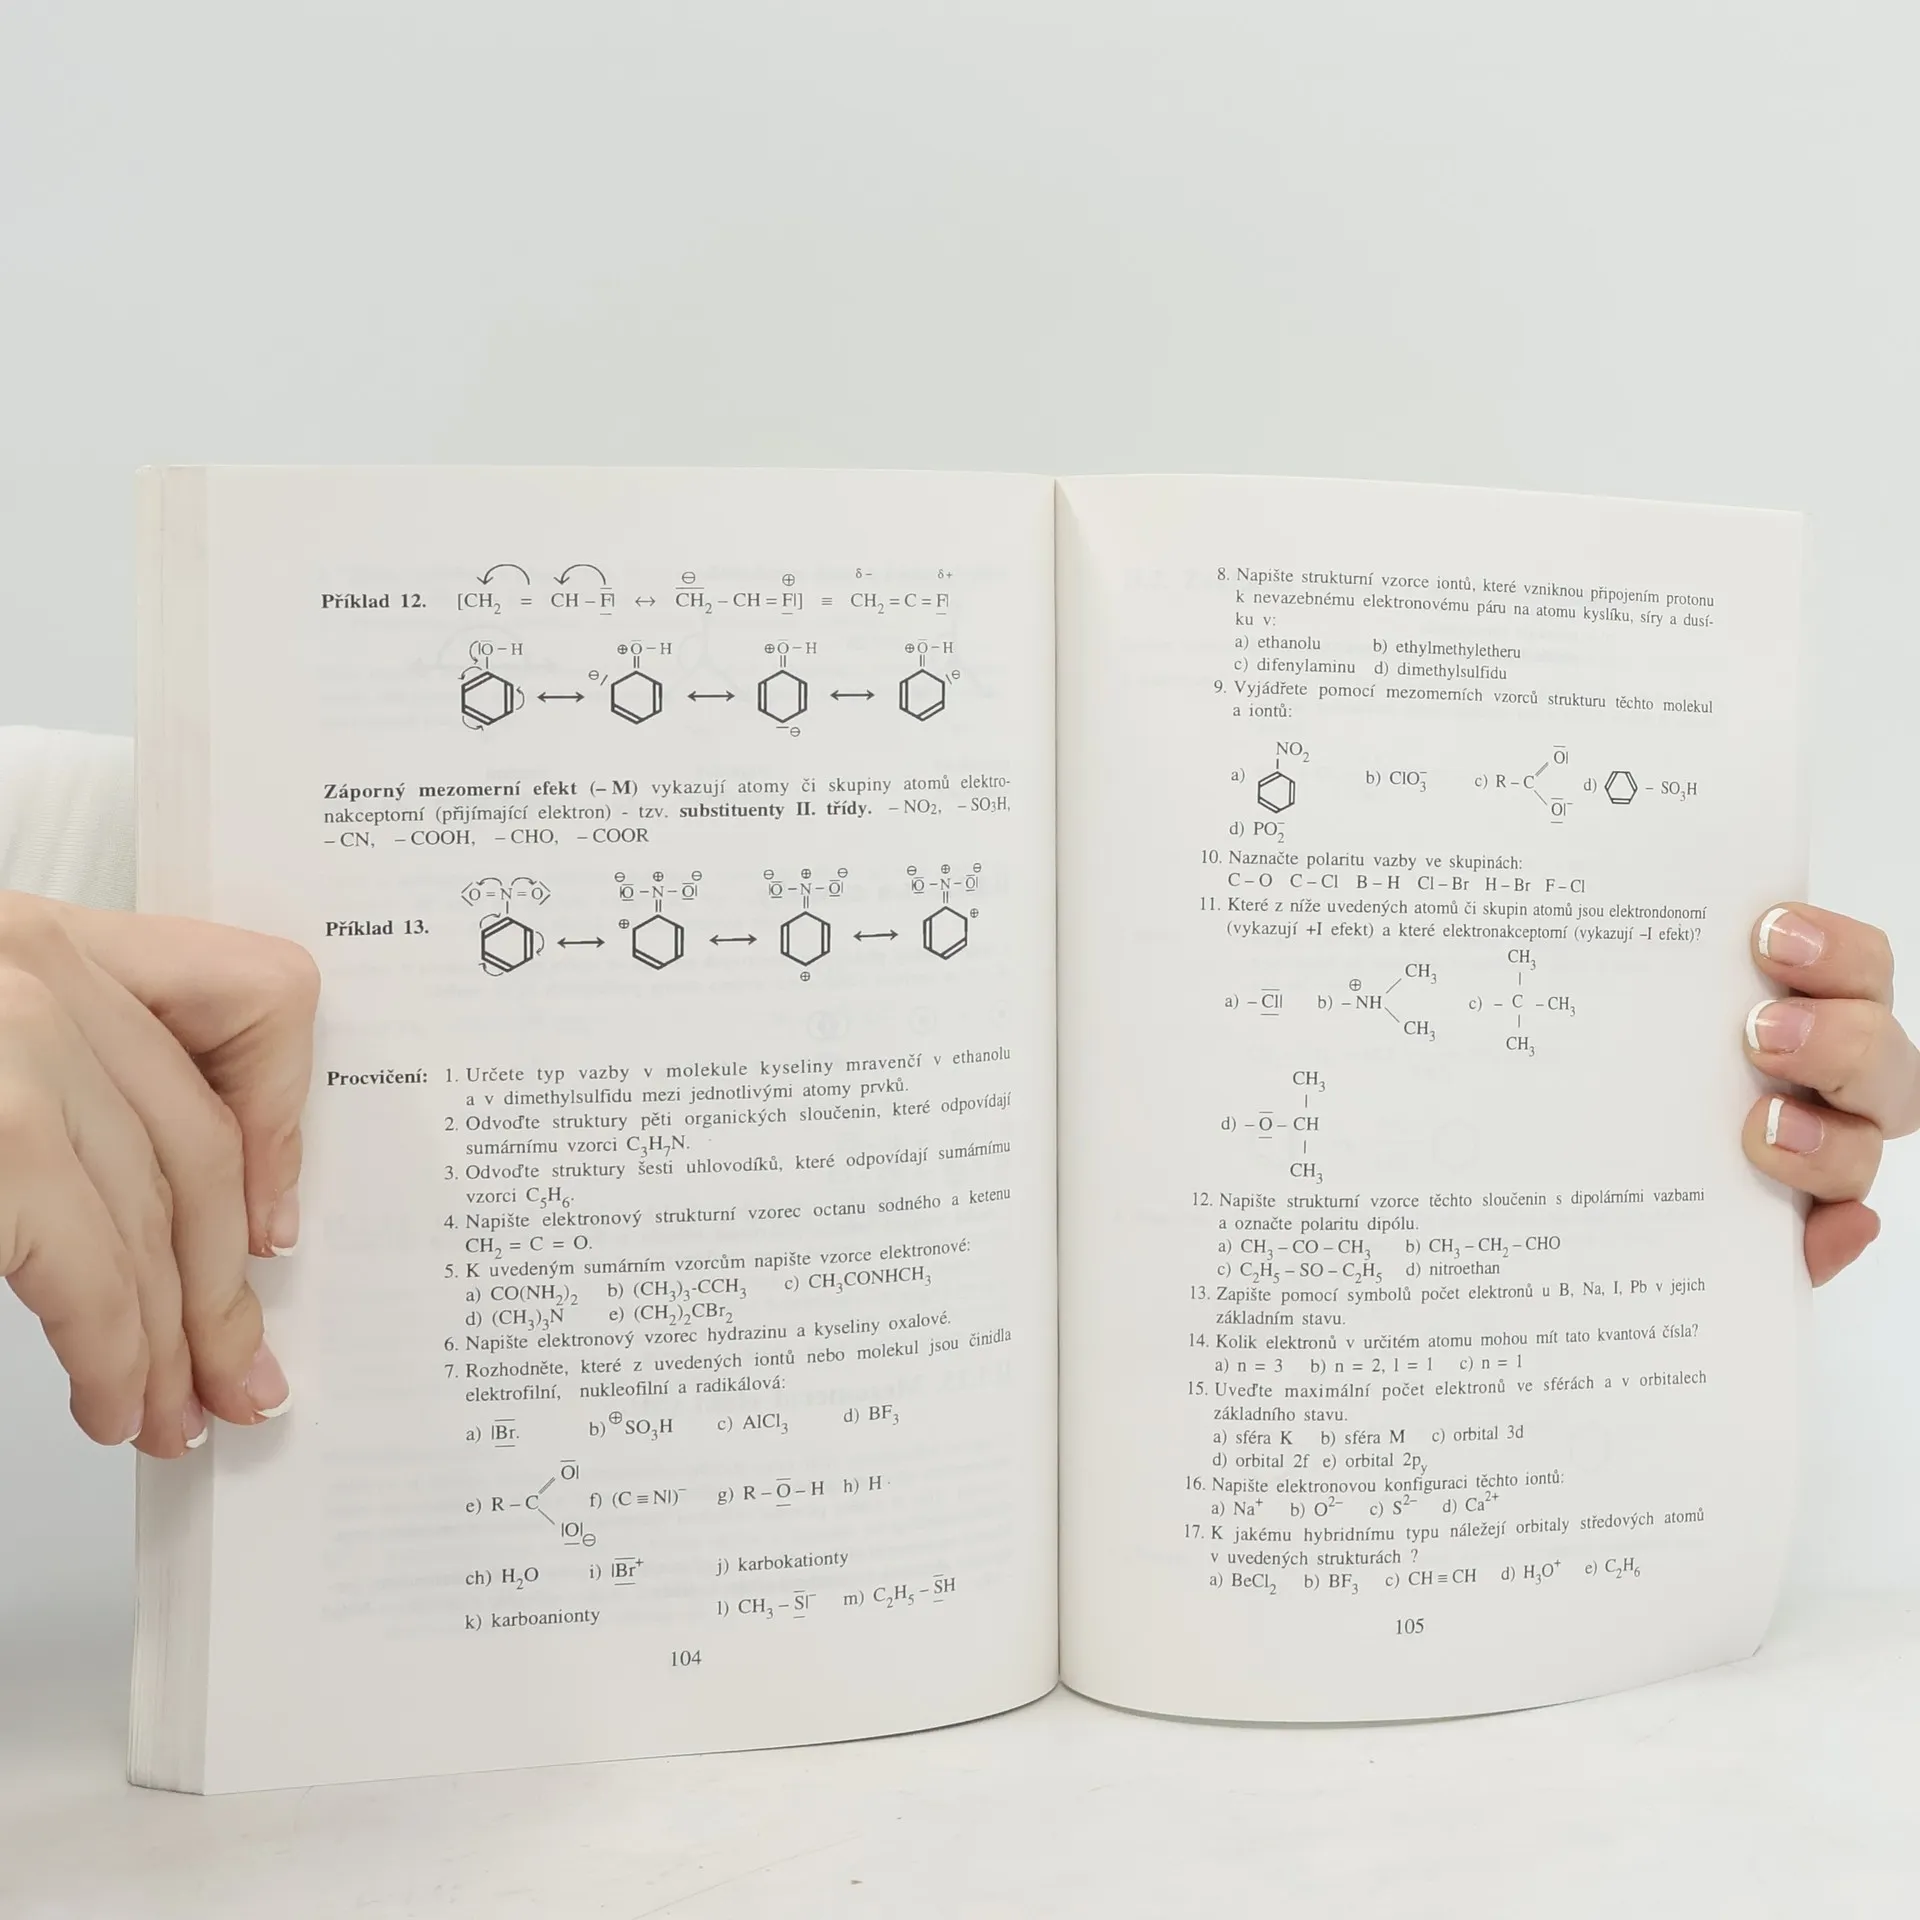 Příklad 12. [CH₂ = CH – F̅| ↔ CH₂ – CH = F|] ≡ CH₂ = C = F|
⊖ ⊕ δ– δ+
|O̅ – H ⊕O̅ – H ⊕O̅ – H ⊕O̅ – H
⊖ ⊖ ⊖
Záporný mezomerní efekt (– M) vykazují atomy či skupiny atomů elektro-
nakceptorní (přijímající elektron) - tzv. substituenty II. třídy. – NO₂, – SO₃H,
– CN, – COOH, – CHO, – COOR
⊖ ⊕ ⊖ ⊖ ⊕ ⊖ ⊖ ⊕ ⊖
⟨O = N = O⟩ |O̅ – N – O̅| |O̅ – N – O̅| |O̅ – N – O̅|
Příklad 13. ⊕ ⊕
⊕
Procvičení: 1. Určete typ vazby v molekule kyseliny mravenčí v ethanolu
a v dimethylsulfidu mezi jednotlivými atomy prvků.
2. Odvoďte struktury pěti organických sloučenin, které odpovídají
sumárnímu vzorci C₃H₇N.
3. Odvoďte struktury šesti uhlovodíků, které odpovídají sumárnímu
vzorci C₅H₆.
4. Napište elektronový strukturní vzorec octanu sodného a ketenu
CH₂ = C = O.
5. K uvedeným sumárním vzorcům napište vzorce elektronové:
a) CO(NH₂)₂ b) (CH₃)₃-CCH₃ c) CH₃CONHCH₃
d) (CH₃)₃N e) (CH₂)₂CBr₂
6. Napište elektronový vzorec hydrazinu a kyseliny oxalové.
7. Rozhodněte, které z uvedených iontů nebo molekul jsou činidla
elektrofilní, nukleofilní a radikálová:
a) |B̅r̅. b) ⊕SO₃H c) AlCl₃ d) BF₃
O̅|
e) R – C f) (C ≡ N|)⁻ g) R – O̅ – H h) H ·
|O|⊖
ch) H₂O i) |B̅r̅⁺ j) karbokationty
k) karboanionty l) CH₃ – S̅|⁻ m) C₂H₅ – S̅H
104
8. Napište strukturní vzorce iontů, které vzniknou připojením protonu
k nevazebnému elektronovému páru na atomu kyslíku, síry a dusí-
ku v:
a) ethanolu b) ethylmethyletheru
c) difenylaminu d) dimethylsulfidu
9. Vyjádřete pomocí mezomerních vzorců strukturu těchto molekul
a iontů:
NO₂ O̅|
a) b) ClO₃⁻ c) R – C d) – SO₃H
O̅|⁻
d) PO₂⁻
10. Naznačte polaritu vazby ve skupinách:
C – O C – Cl B – H Cl – Br H – Br F – Cl
11. Které z níže uvedených atomů či skupin atomů jsou elektrondonorní
(vykazují +I efekt) a které elektronakceptorní (vykazují –I efekt)?
CH₃ CH₃
a) – C̅l̅| b) – ⊕NH c) – C – CH₃
CH₃ CH₃
CH₃
d) – O̅ – CH
CH₃
12. Napište strukturní vzorce těchto sloučenin s dipolárními vazbami
a označte polaritu dipólu.
a) CH₃ – CO – CH₃ b) CH₃ – CH₂ – CHO
c) C₂H₅ – SO – C₂H₅ d) nitroethan
13. Zapište pomocí symbolů počet elektronů u B, Na, I, Pb v jejich
základním stavu.
14. Kolik elektronů v určitém atomu mohou mít tato kvantová čísla?
a) n = 3 b) n = 2, l = 1 c) n = 1
15. Uveďte maximální počet elektronů ve sférách a v orbitalech
základního stavu.
a) sféra K b) sféra M c) orbital 3d
d) orbital 2f e) orbital 2pᵧ
16. Napište elektronovou konfiguraci těchto iontů:
a) Na⁺ b) O²⁻ c) S²⁻ d) Ca²⁺
17. K jakému hybridnímu typu náležejí orbitaly středových atomů
v uvedených strukturách ?
a) BeCl₂ b) BF₃ c) CH ≡ CH d) H₃O⁺ e) C₂H₆
105